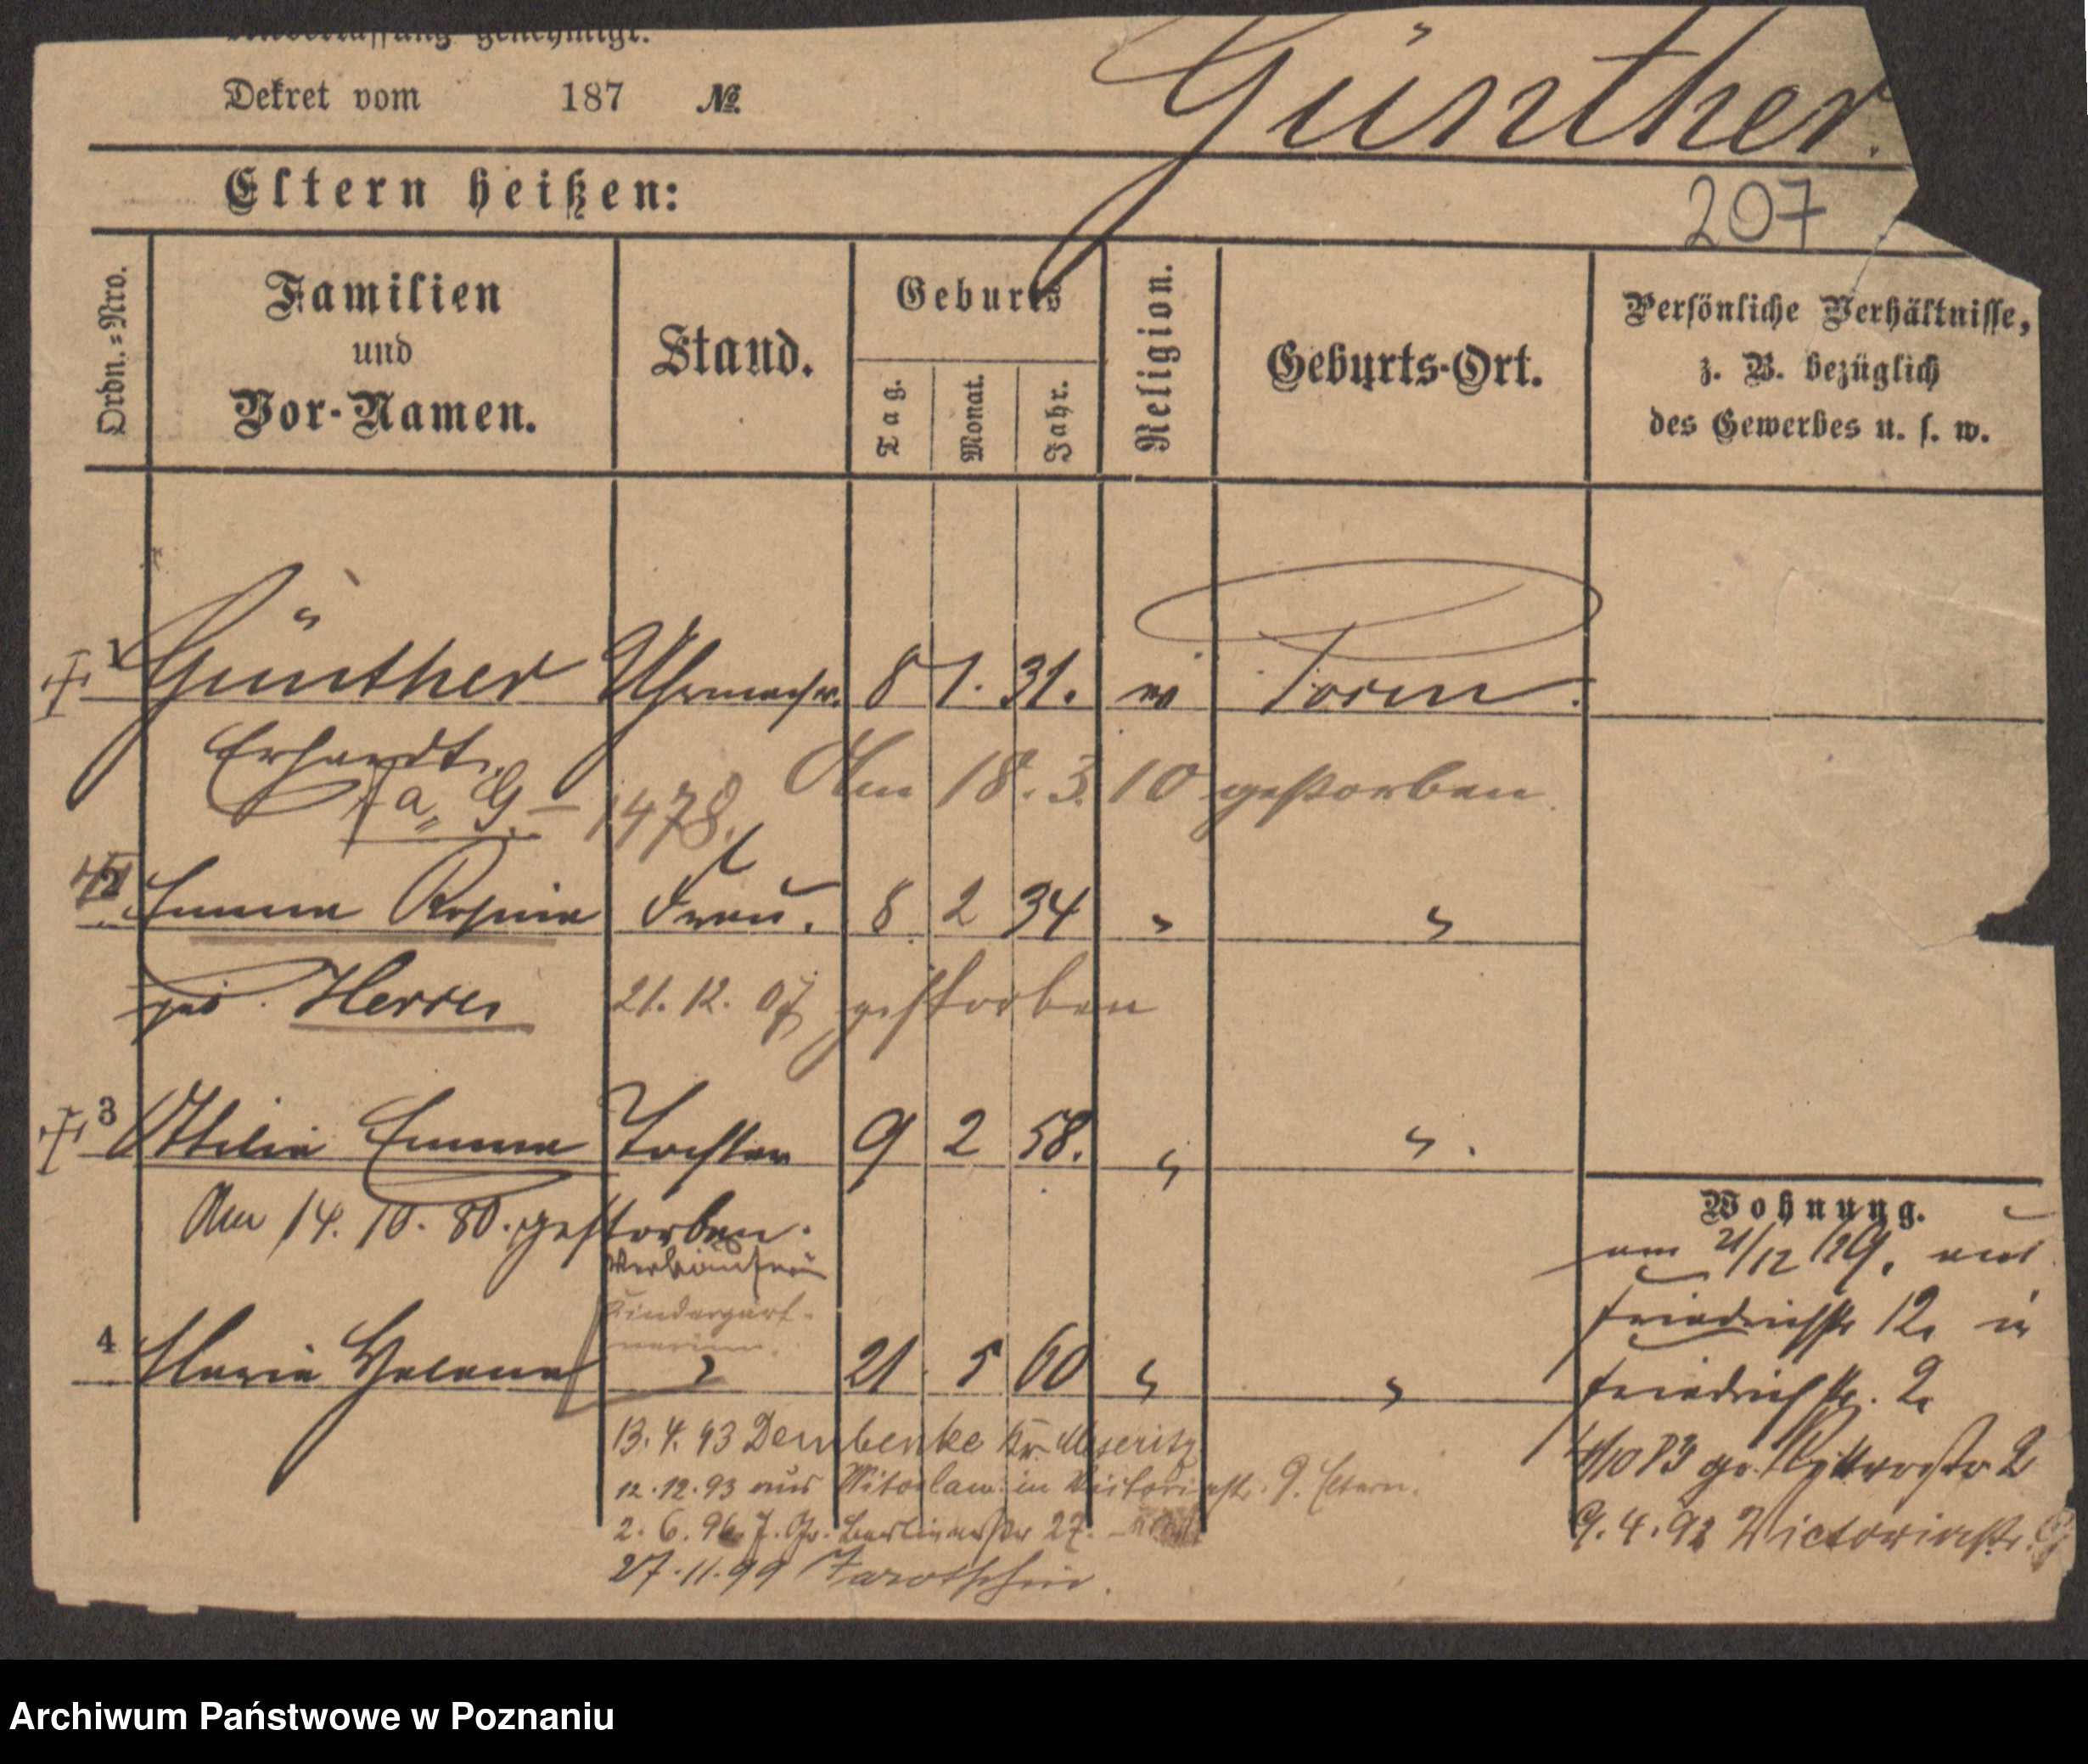 Niederlassung genehmigt.
Dekret vom 187 No.
Günther.
Eltern heißen:
207
Ordn.-Nro.
Familien
und
Vor-Namen.
Stand.
Geburts
Tag.
Monat.
Jahr.
Religion.
Geburts-Ort.
Persönliche Verhältnisse,
z. B. bezüglich
des Gewerbes u. s. w.
1 Günther Uhrmachr. 8 1. 31. Posen.
Erhardt.
Am 18. 3. 10 gestorben.
a. G. – 1478.
2 Emma Rosina Frau. 8 2 34 " "
geb. Herrer 21. 12. 07 gestorben
3 Ottilie Emma Tochter 9 2 58. " ".
Am 14. 10. 80. gestorben.
Verkäuferin
Kindergärt-
nerin.
4 Maria Helena " 21 5 60 " "
13. 4. 93 Dembenke Kr. Meseritz
12. 12. 93 aus Witoslaw in Victoriastr. 9. Eltern.
2. 6. 96. Gr. Berlinerstr 27.
27. 11. 99 Jarotschin.
Wohnung.
am 21/12 79. aus
Friedrichstr 12. in
Friedrichstr. 2.
10 83 gr. Ritterstr 2
9. 4. 92 Victoriastr. 9
Archiwum Państwowe w Poznaniu